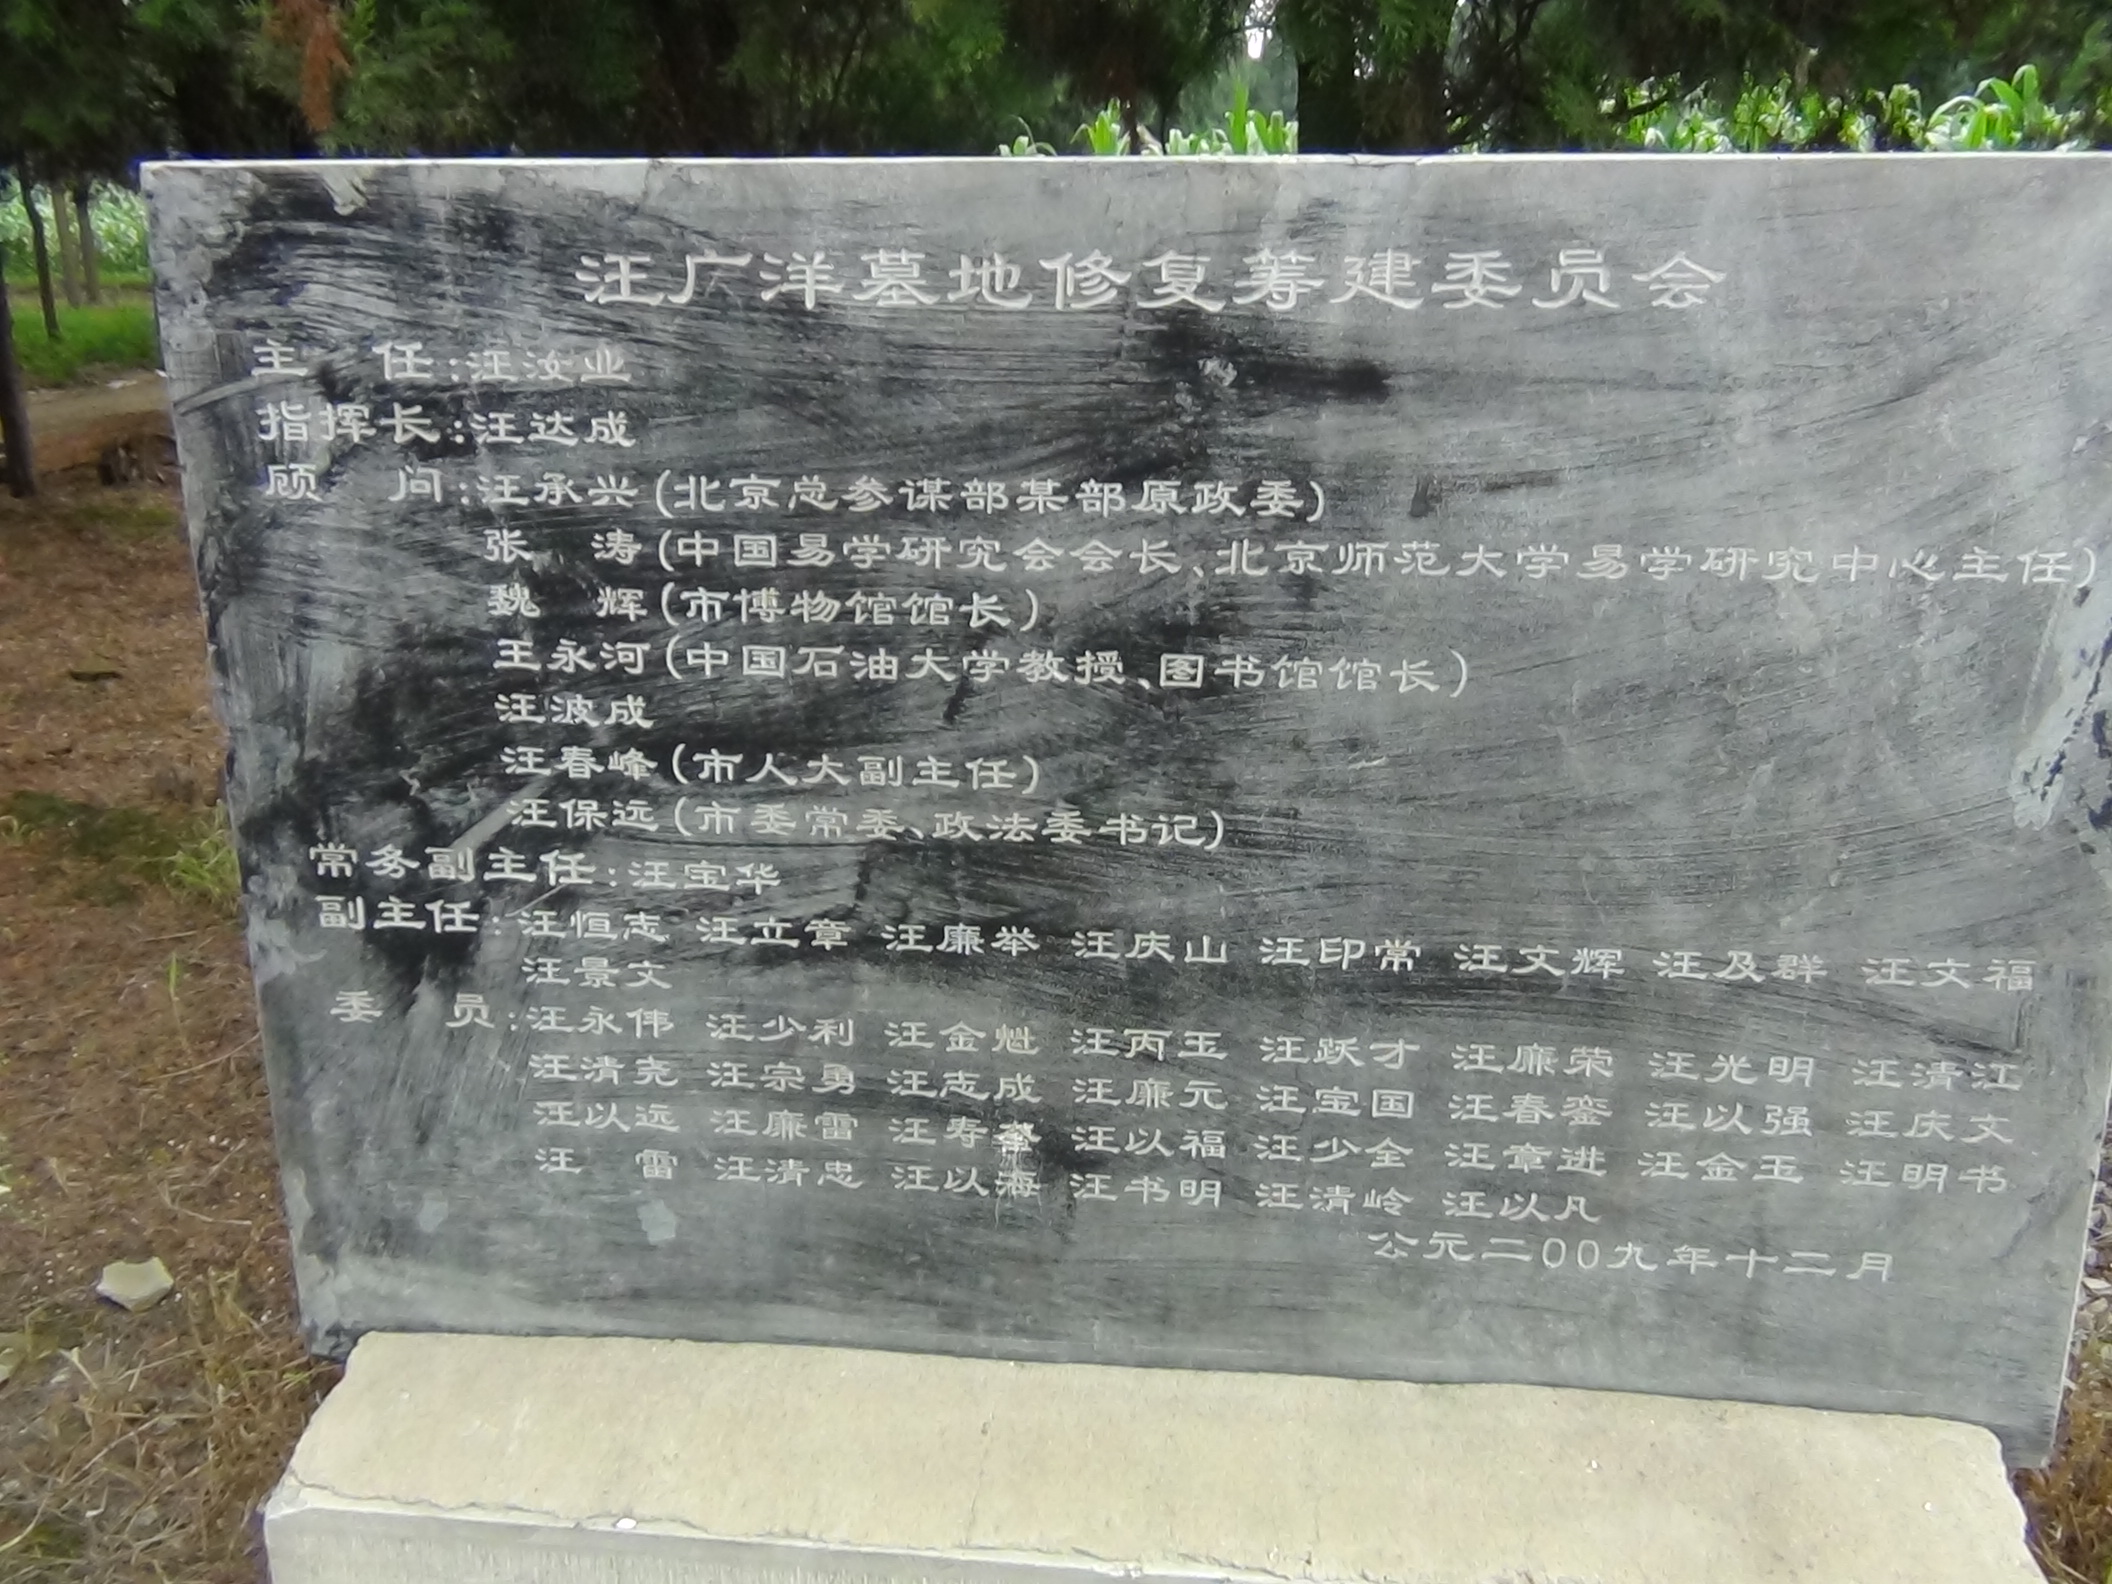 汪广洋墓地修复筹建委员会
主 任:汪汝业
指挥长:汪达成
顾 问:汪承兴(北京总参谋部某部原政委)
张 涛(中国易学研究会会长、北京师范大学易学研究中心主任)
魏 辉(市博物馆馆长)
王永河(中国石油大学教授、图书馆馆长)
汪波成
汪春峰(市人大副主任)
汪保远(市委常委、政法委书记)
常务副主任:汪宝华
副主任:汪恒志 汪立章 汪廉举 汪庆山 汪印常 汪文辉 汪及群 汪文福
汪景文
委 员:汪永伟 汪少利 汪金魁 汪丙玉 汪跃才 汪廉荣 汪光明 汪清江
汪清尧 汪宗勇 汪志成 汪廉元 汪宝国 汪春銮 汪以强 汪庆文
汪以远 汪廉雷 汪寿 汪以福 汪少全 汪章进 汪金玉 汪明书
汪 雷 汪清忠 汪以海 汪书明 汪清岭 汪以凡
公元二00九年十二月